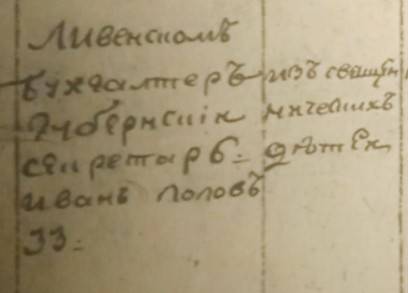 Ливенскомъ
Бухгалтеръ изъ священ
Губернскiй ническихъ
секретарь: дѣтей
Иванъ Поповъ
33: